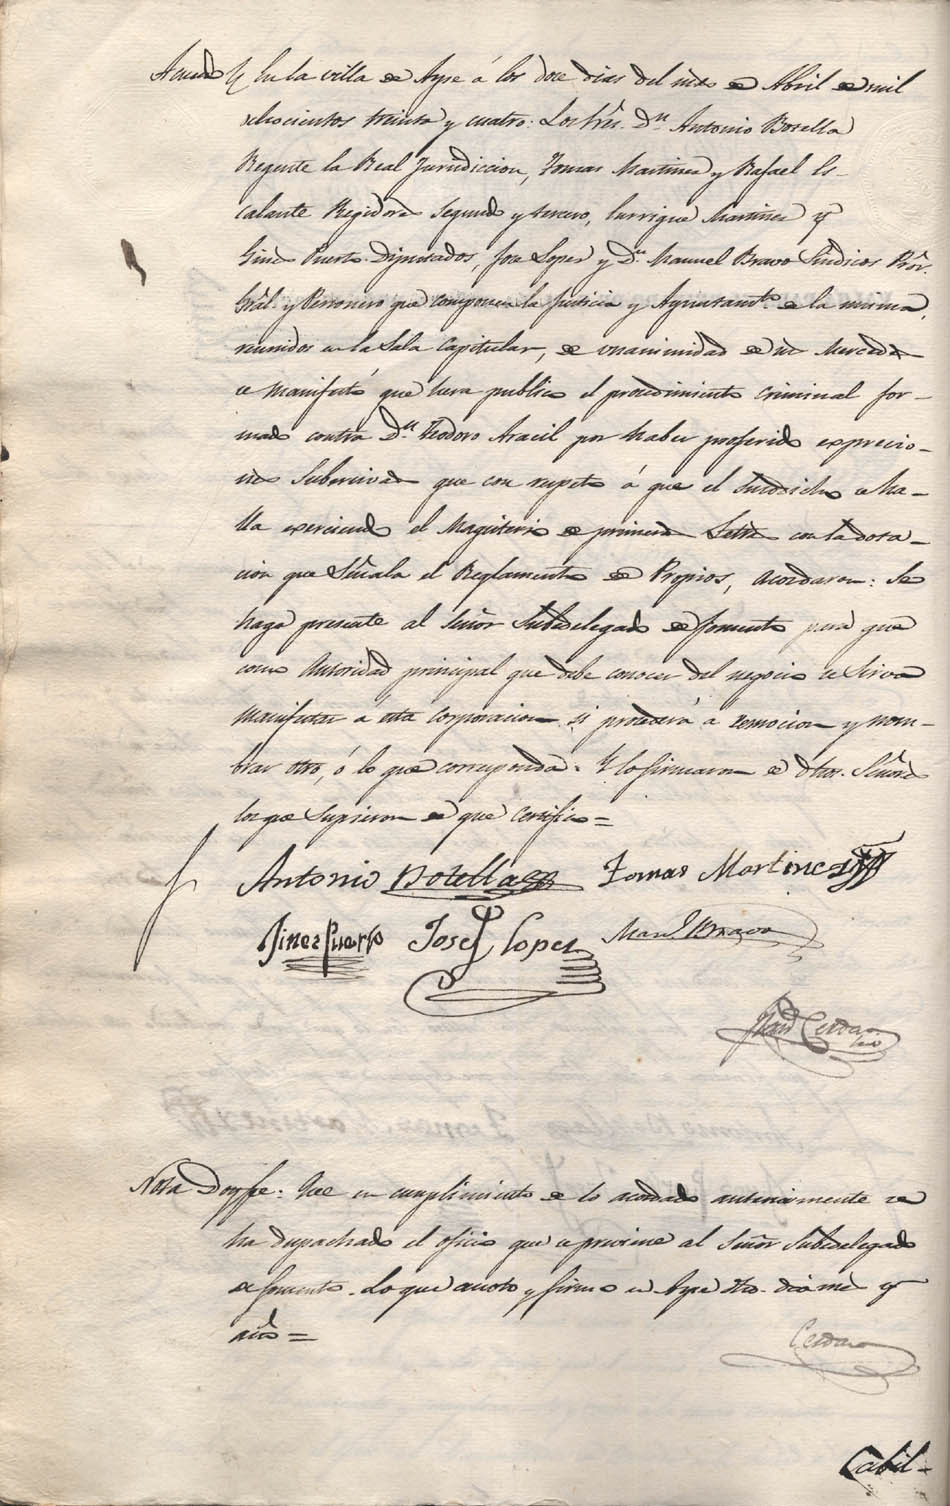 Acuerdo En la villa de Aspe á los doce dias del mes de Abril de mil
ochocientos treinta y cuatro: Los Sres. Dn. Antonio Botella
Regente la Real Jurisdiccion, Tomas Martinez y Rafael Es-
calante Regidores Segundo y tercero, Enrrique Martinez y
Gines Puerto Diputados, Jose Lopez y Dn. Manuel Bravo Sindicos Pror.
Gral. y Personero que componen la Justicia y Ayuntamto. de la misma,
reunidos en la Sala Capitular, de unanimidad de
se manifestó que hera publico el procedimiento criminal for-
mado contra Dn. Teodoro Aracil por haber proferido exprecio-
nes Subercivas que con respeto á que el susodicho se ha-
lla exerciendo el Magisterio de primeras Letras con la dota-
cion que Señala el Reglamento de Propios, acordaron: Se
haga presente al Señor Subdelegado de fomento para que
como Autoridad principal que debe conocer del negocio se Sirva
manifestar á esta Corporacion si procederá á remocion y nom-
brar otro, ó lo que corresponda. Y lo firmaron de dhos. Señores
los que Supieron de que Certifico=
Antonio Botella Tomas Martinez
Jines Puerto Jose Lopez Manl. Bravo
Cerdan
Nota Doyfe: Que en cumplimiento de lo acordado anteriormente se
ha despachado el oficio que se previene al Señor Subdelegado
de fomento. Lo que anoto y firmo en Aspe dho. dia mes y
año=
Cerdan
Cabil-